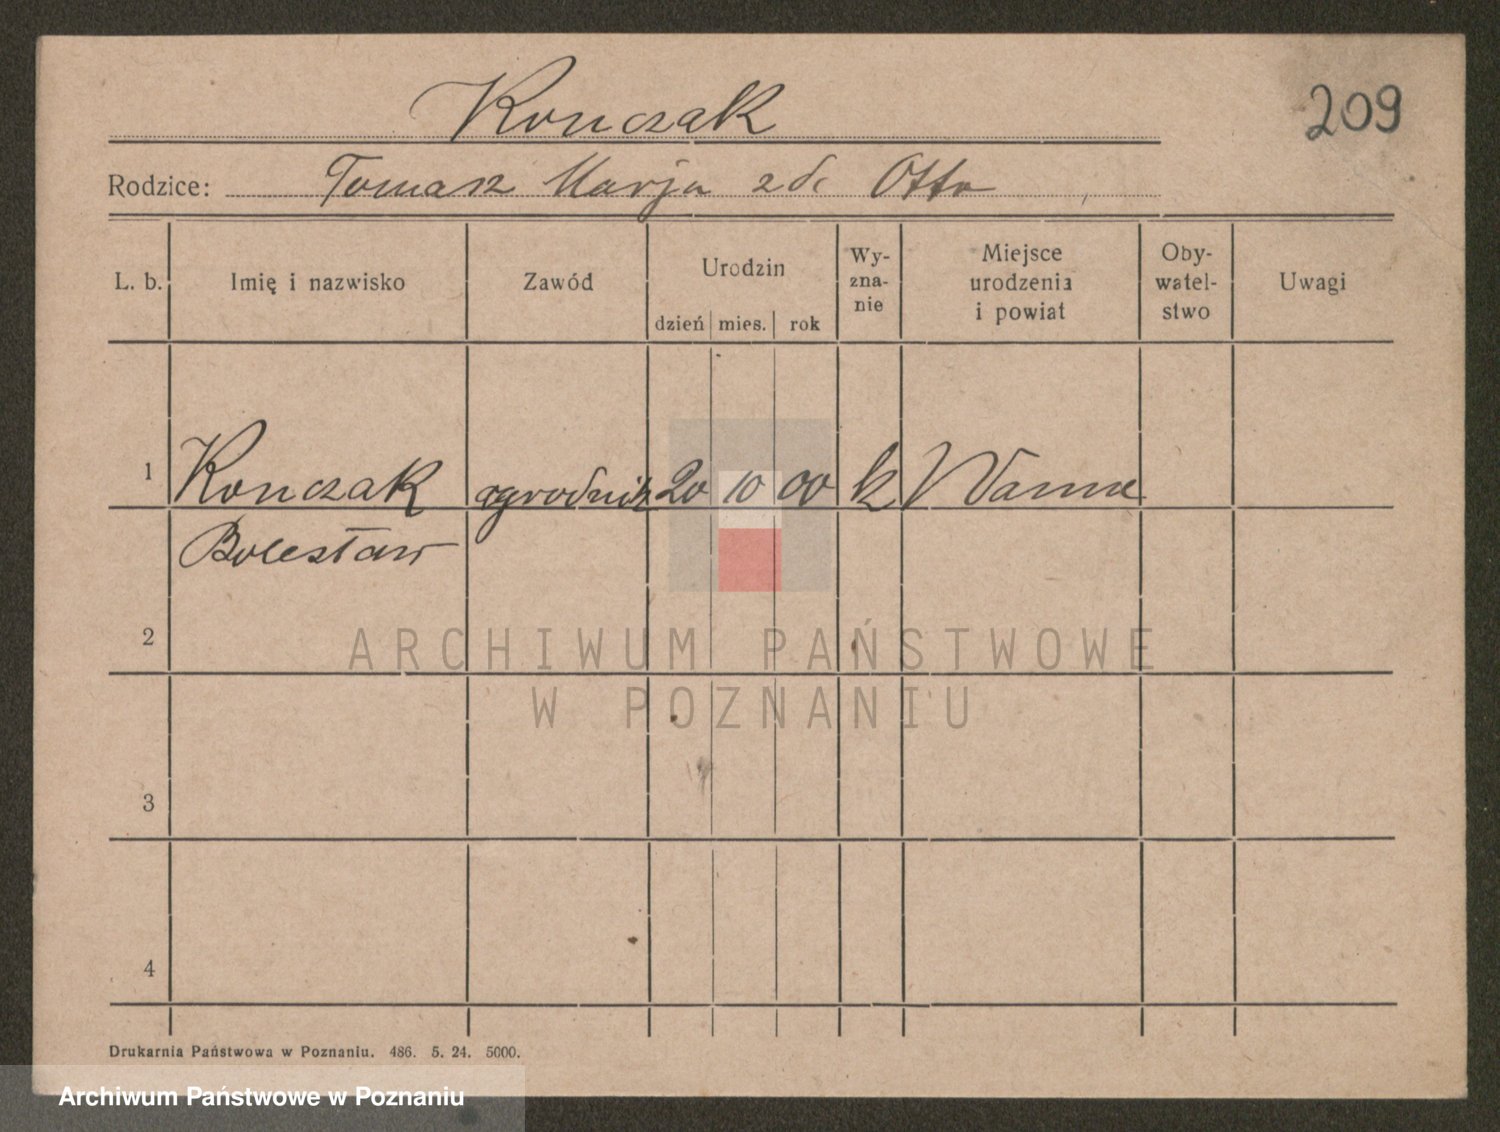 Konczak
209
Rodzice: Tomasz Marja z d. Otto
L. b. Imię i nazwisko Zawód Urodzin dzień mies. rok Wy-zna-nie Miejsce urodzenia i powiat Oby-watel-stwo Uwagi
1 Konczak ogrodnik 20 10 00 k Wanne
Bolesław
2
ARCHIWUM PAŃSTWOWE
W POZNANIU
3
4
Drukarnia Państwowa w Poznaniu. 486. 5. 24. 5000.
Archiwum Państwowe w Poznaniu